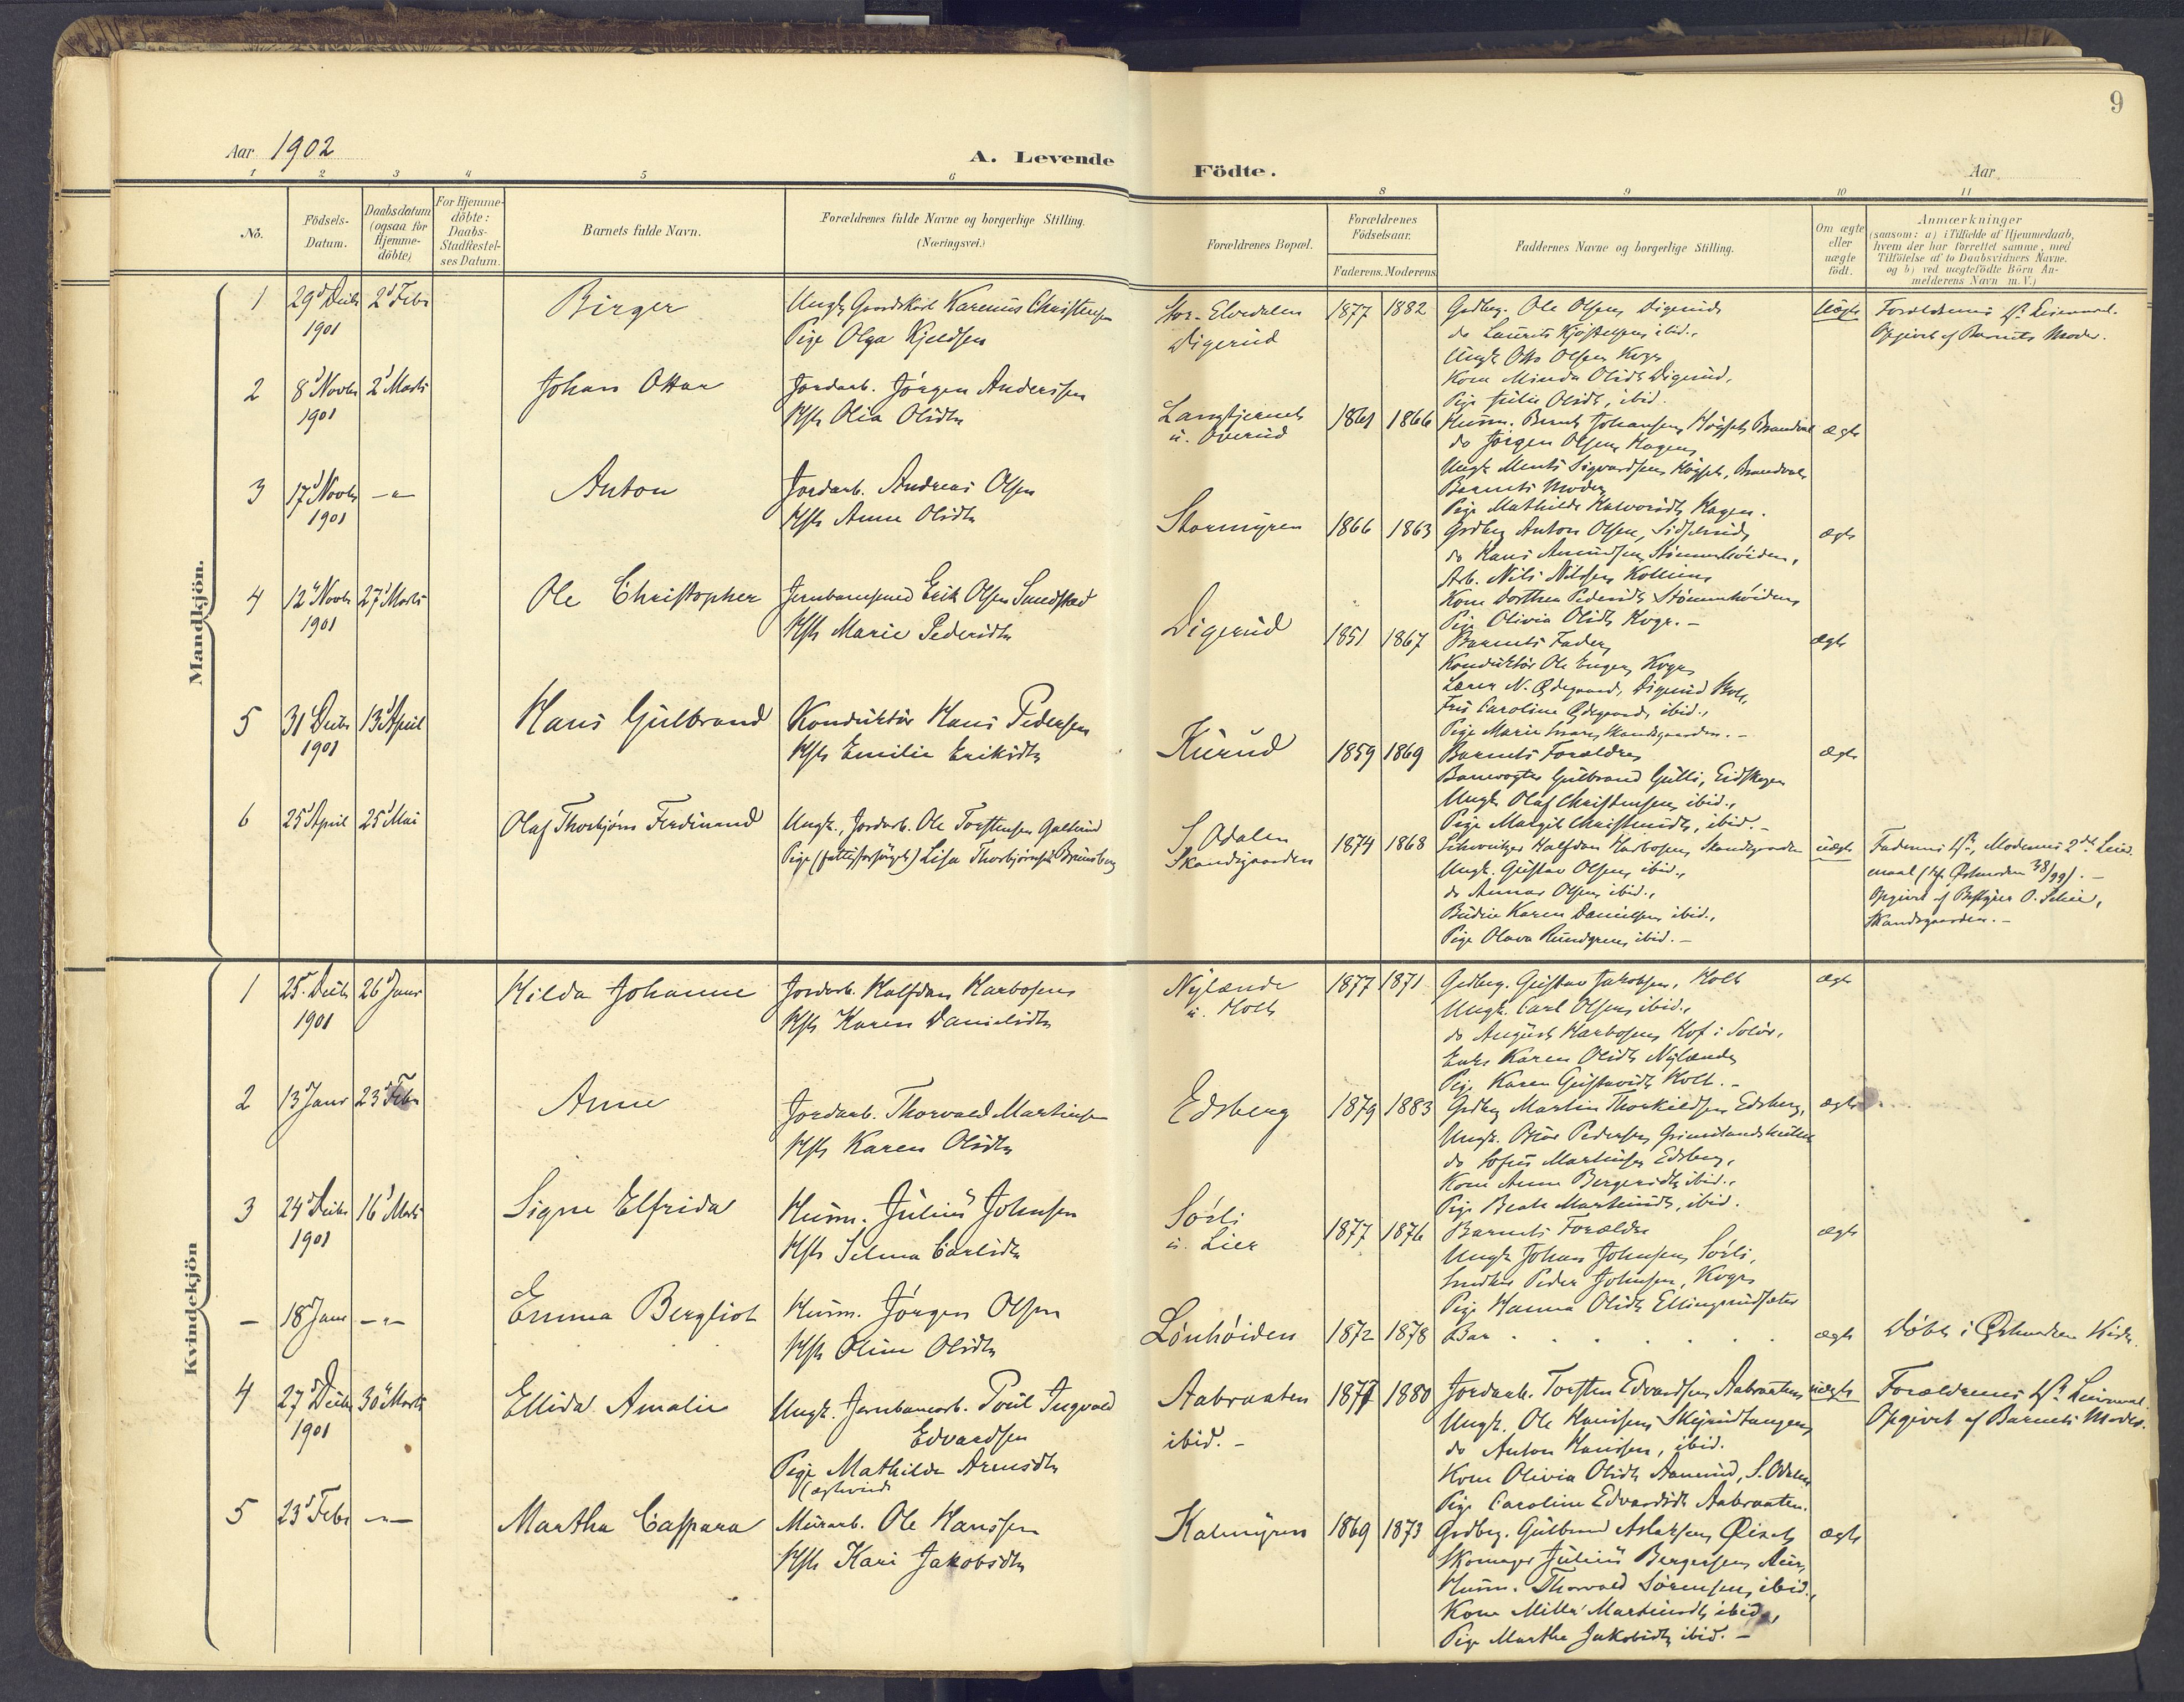 9
Aar 1902
A. Levende Födte.
Aar
1 2 3 4 5 6 8 9 10 11
No.
Födsels-Datum.
Daabsdatum (ogsaa for Hjemme-döbte)
For Hjemme-döbte: Daabs-Stadfestel-ses Datum.
Barnets fulde Navn.
Forældrenes fulde Navne og borgerlige Stilling.
(Næringsvei.)
Forældrenes Bopæl.
Forældrenes Födselsaar.
Faderens. Moderens
Faddernes Navne og borgerlige Stilling.
Om ægte eller uægte födt.
Anmærkninger
(saasom: a) i Tilfælde af Hjemmedaab,
hvem der har forrettet samme, med
Tilföielse af to Daabsvidners Navne.
og b) ved uægtefödte Börn An-
melderens Navn m.V.)
Mandkjön.
1 29d Decbr 1901 2d Febr Birger
Ungk. Gaardskarl Karenus Christensen
Pige Olga Kjeldsen
Sor-Elvdalen
Digerud
1877 1882
Grdbrg. Ole Olsen Digerud
do Laurits Kjøstelsen ibid.,
Ungk Otto Olsen Kogr
Kone Minda Olsdt Digerud,
Pige Julie Olsdt, ibid.
Uægte
Forældrenes 1st Leiermaal.
Opgivet af Barnets Moder.
2 8d Novbr 1901 2d Marts Johan Ottar
Jordarb. Jörgen Anderssen
Hstr Olia Olsdtr
Langtjernet
u. Overud
1861 1866
Husm. Bernt Johansen, Brandval
do Jörgen Olsen, Hagen,
Ungk Sigvardsen, Brandval
Barnets Moder
Pige Mathilde Halvorsdt, Hagen.
ægte
3 17d Novbr 1901 -"- Anton
Jordarb. Andreas Olsen
Hstr Anne Olsdtr
Stormyren
1866 1863
Grdbrg Anton Olsen,
do Hans Amundsen,
Arb. Nils Nilsen
Kone Dorthea Pedersdt
Pige Olivia Olsdt Kogr. -
ægte
4 12d Novbr 1901 27d Marts Ole Christopher
Jernbanemand Erik Olsen Sandstad
Hstr Marie Pedersdtr
Digerud
1851 1867
Barnets Fader,
Konduktör Ole Enger, Kogr,
Lærer N. Ødegaard, Digerud
Frø Caroline Ødegaard, ibid.,
Pige Marie
ægte
5 31 Decbr 1901 13d April Hans Gulbrand
Konduktör Hans Pedersen
Hstr Emilie Eriksdtr
Kurud
1859 1869
Barnets Forældre,
Banevogter Gulbrand Gulli, Eidskogen
Ungk Olaf Christensen, ibid.,
Pige Margit Christensdt, ibid. -
ægte
6 25d April 25d Mai Olaf Thorbjörn Ferdinand
Ungk., Jordarb. Ole Torstensen Galterud
Pige (fattigforsörget) Lisa Thorbjörnsdt Brunsberg
S. Odalen
Skandsgaarden
1874 1868
Schweitzer Halfdan Harbosen, Skandsgaarden
Ungk. Gustav Olsen, ibid.,
do Annar Olsen, ibid.,
Budeie Karen Danielsen, ibid.,
Pige Olava Rundgren, ibid. -
uægte
Faderens 1st, Moderens 2det Leier-
maal 38/99). -
Opgivet af Bestyrer O. Schie,
Skandsgaarden. -
Kvindekjön
1 25. Decbr 1901 26d Janr Hilda Johanne
Jordarb. Halfdan Harbosen
Hstr Karen Danielsdtr
Nylænde
u. Holt
1877 1871
Grdbrg. Gustav Jakobsen, Holt
Ungk. Carl Olsen, ibid.,
do August Harbosen, Hof i Solör,
Enke Karen Olsdt Nylænde,
Pige Karen Gustavsdt Holt. -
ægte
2 13d Janr 23d Febr Anne
Jordarb. Thorvald Martinsen
Hstr Karen Olsdtr
Edsberg
1879 1883
Grdbrg Martin Thorkildsen, Edsberg,
Ungk. Oscar Pedersen,
do Sofus Martinsen, Edsberg,
Kone Anne Bergersdt, ibid.,
Pige Beate Martinsdt, ibid.
ægte
3 24d Decbr 1901 16d Marts Signe Elfrida
Husm. Julius Johnsen
Hstr Selma Carlsdtr
Sörli
u. Lier
1877 1876
Barnets Forældre
Ungk Johan Johnsen, Sörli,
Snedker Peder Johnsen, Kogr,
Pige Hanna Olsdt Ellingsrudsæter
ægte
– 18d Janr -"- Emma Bergliot
Husm. Jörgen Olsen
Hstr Oline Olsdtr
Lönhöiden
1872 1878
Bar . . . . . .
ægte
Döbt i Kirke.
4 27d Decbr 1901 30d Marts Ellida Amalie
Ungk. Jernbanearb. Poul Ingvald
Edvardsen
Pige Mathilde Arnesdtr
Aabraaten
ibid. -
1877 1880
Jordarb. Torsten Edvardsen, Aabraaten
Ungk. Ole Hansen,
do Anton Hansen, ibid.
Kone Olivia Olsdt Aamrud, S. Odalen
Pige Caroline Edvardsdt Aabraaten.
uægte
Forældrenes 1st Leiermaal.
Opgivet af Barnets Moder.
5 23d Febr -"- Martha Caspara
Murarb. Ole Hanssen
Hstr Kari Jakobsdtr
Kalmyren
1869 1873
Grdbrg. Gulbrand Aslaksen,
Skomager Julius Bergersen,
Husm. Thorvald Sörensen, ibid.,
Kone Milla Martinsdt, ibid.,
Pige Martha Jakobsdt, ibid. -
ægte